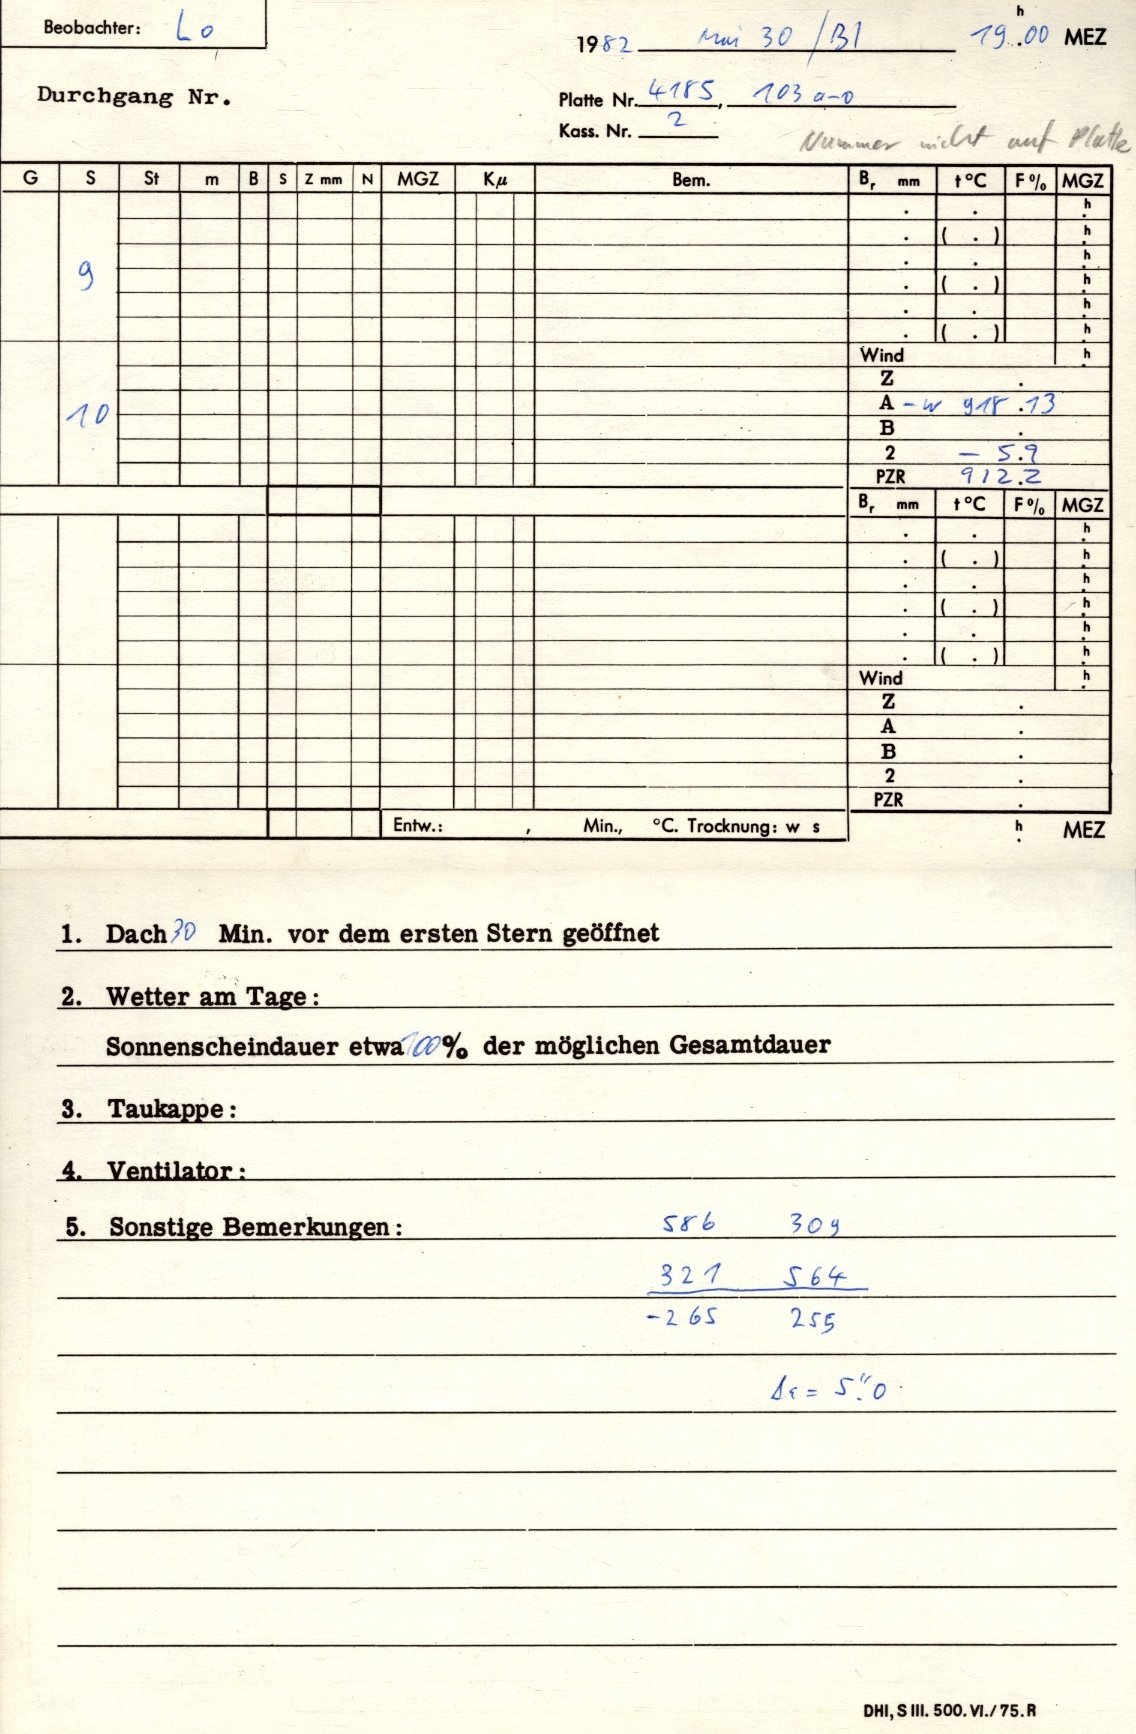 Beobachter: Lo
1982 Mai 30/31 19.00 h MEZ
Durchgang Nr.
Platte Nr. 4185, 103 a-o
Kass. Nr. 2
Nummer nicht auf Platte
G S St m B S Z mm N MGZ Kμ Bem. Br mm t °C F % MGZ
. . h
. ( . ) h
. . h
9 . ( . ) h
. . h
. ( . ) h
Wind h
Z .
10 A - w 918.13
B .
2 - 5.9
PZR 912.2
Br mm t °C F % MGZ
. . h
. ( . ) h
. . h
. ( . ) h
. . h
. ( . ) h
Wind h
Z .
A .
B .
2 .
PZR .
Entw.: , Min., °C. Trocknung: w s h MEZ
1. Dach 30 Min. vor dem ersten Stern geöffnet
2. Wetter am Tage:
Sonnenscheindauer etwa 100 % der möglichen Gesamtdauer
3. Taukappe:
4. Ventilator:
5. Sonstige Bemerkungen: 586 309
321 564
-265 255
= 5".0
DHI, S III. 500. VI./75. R